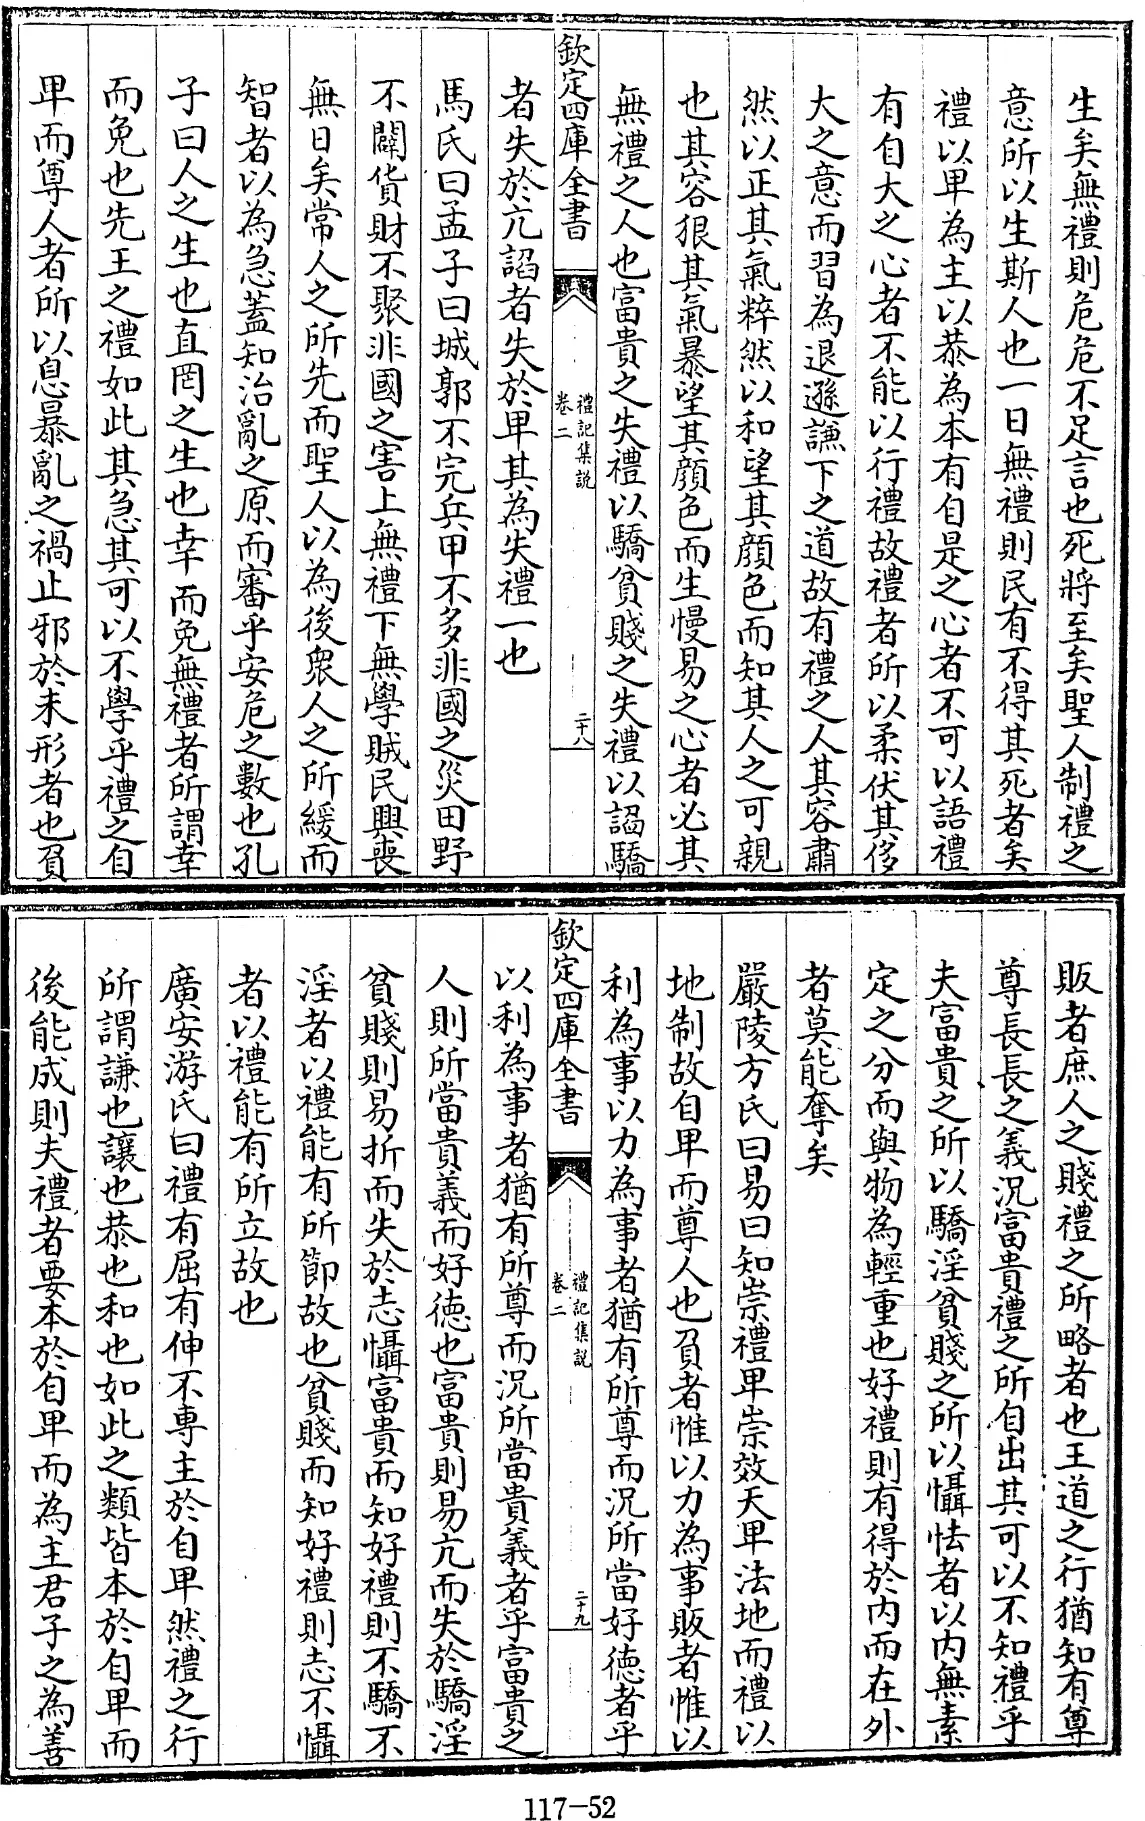 生矣無禮則危危不足言也死將至矣聖人制禮之
意所以生斯人也一日無禮則民有不得其死者矣
禮以卑為主以恭為本有自是之心者不可以語禮
有自大之心者不能以行禮故禮者所以柔伏其侈
大之意而習為退遜謙下之道故有禮之人其容肅
然以正其氣粹然以和望其顔色而知其人之可親
也其容狠其氣暴望其顔色而生慢易之心者必其
無禮之人也富貴之失禮以驕貧賤之失禮以謟驕
欽定四庫全書
禮記集説
卷二
二十八
者失於亢謟者失於卑其為失禮一也
馬氏曰孟子曰城郭不完兵甲不多非國之災田野
不闢貨財不聚非國之害上無禮下無學賊民興喪
無日矣常人之所先而聖人以為後衆人之所緩而
智者以為急蓋知治亂之原而審乎安危之數也孔
子曰人之生也直罔之生也幸而免無禮者所謂幸
而免也先王之禮如此其急其可以不學乎禮之自
卑而尊人者所以息暴亂之禍止邪於未形者也負
販者庶人之賤禮之所略者也王道之行猶知有尊
尊長長之義況富貴禮之所自出其可以不知禮乎
夫富貴之所以驕淫貧賤之所以懾怯者以内無素
定之分而與物為輕重也好禮則有得於内而在外
者莫能奪矣
嚴陵方氏曰易曰知崇禮卑崇效天卑法地而禮以
地制故自卑而尊人也負者惟以力為事販者惟以
利為事以力為事者猶有所尊而況所當好徳者乎
欽定四庫全書
禮記集説
卷二
二十九
以利為事者猶有所尊而況所當貴義者乎富貴之
人則所當貴義而好徳也富貴則易亢而失於驕淫
貧賤則易折而失於志懾富貴而知好禮則不驕不
淫者以禮能有所節故也貧賤而知好禮則志不懾
者以禮能有所立故也
廣安游氏曰禮有屈有伸不専主於自卑然禮之行
所謂謙也讓也恭也和也如此之類皆本於自卑而
後能成則夫禮者要本於自卑而為主君子之為善
117-52